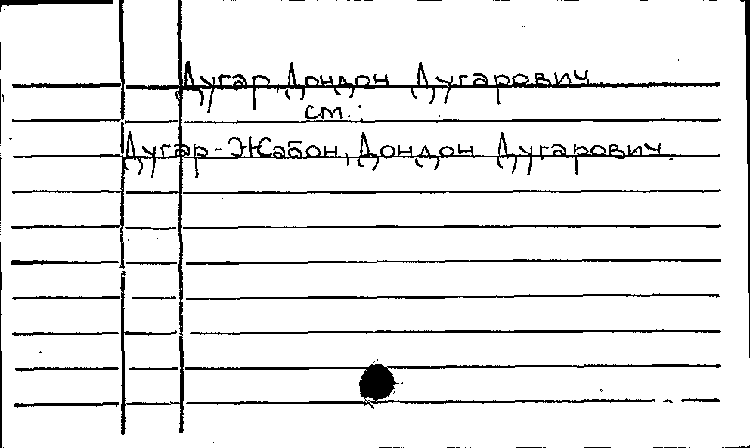 Дугар, Дондон Дугарович
см.:
Дугар-Жабон, Дондон Дугарович.